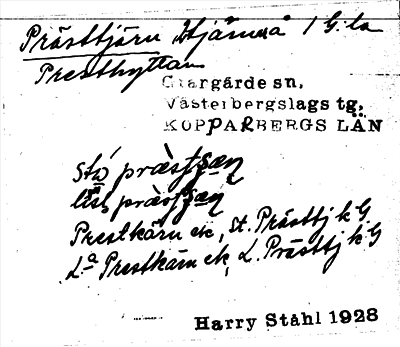 Prästtjärn Stjärnså 1 G. la
Presthyttan
Grangärde sn,
Västerbergslags tg,
KOPPARBERGS LÄN
sta præstʂæɳ
lisl præstʂæɳ
Prestkärn ek, St. Prästtj k G
L:a Prestkärn ek, L. Prästtj k G
Harry Ståhl 1928